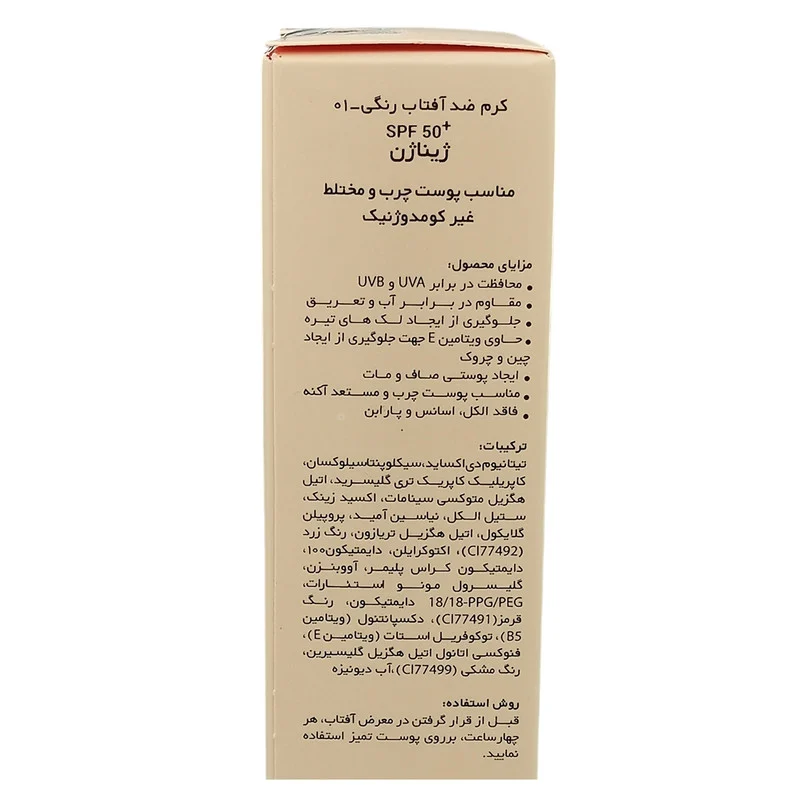 کرم ضد آفتاب رنگی-۰۱
SPF 50+
ژیناژن
مناسب پوست چرب و مختلط
غیر کومدوژنیک
مزایای محصول:
• محافظت در برابر UVA و UVB
• مقاوم در برابر آب و تعریق
• جلوگیری از ایجاد لک های تیره
• حاوی ویتامین E جهت جلوگیری از ایجاد
چین و چروک
• ایجاد پوستی صاف و مات
• مناسب پوست چرب و مستعد آکنه
• فاقد الکل، اسانس و پارابن
ترکیبات:
تیتانیوم دی اکساید، سیکلوپنتاسیلوکسان،
کاپریلیک کاپریک تری گلیسرید، اتیل
هگزیل متوکسی سینامات، اکسید زینک،
ستیل الکل، نیاسین آمید، پروپیلن
گلایکول، اتیل هگزیل تریازون، رنگ زرد
(CI77492)، اکتوکرایلن، دایمتیکون۱۰۰،
دایمتیکون کراس پلیمر، آووبنزن،
گلیسرول مونو استئارات،
18/18-PPG/PEG دایمتیکون، رنگ
قرمز(CI77491)، دکسپانتنول (ویتامین
B5)، توکوفریل استات (ویتامین E)،
فنوکسی اتانول اتیل هگزیل گلیسیرین،
رنگ مشکی (CI77499)،آب دیونیزه
روش استفاده:
قبل از قرار گرفتن در معرض آفتاب، هر
چهارساعت، برروی پوست تمیز استفاده
نمایید.